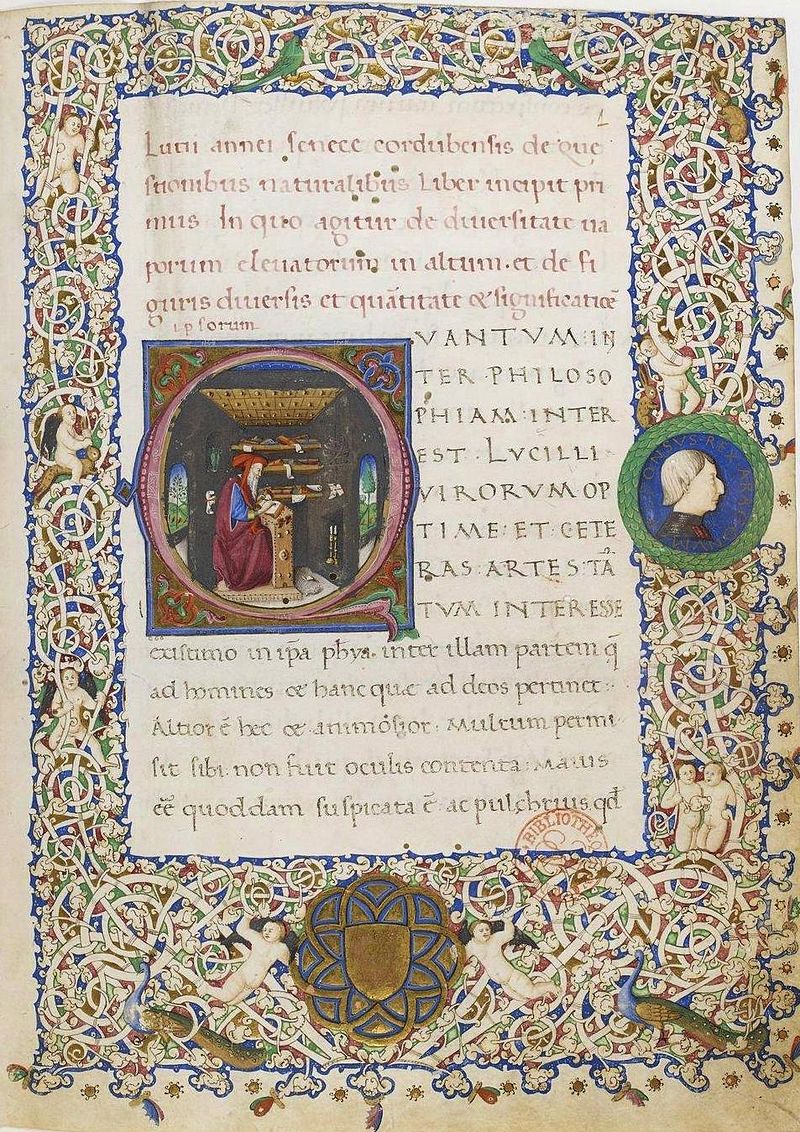 1
Lutii annei senece cordubensis de que
stionibus naturalibus Liber incipit pri
mus In quo agitur de diversitate va
porum elevatorum in altum. et de fi
guris diversis et quãtitate & significatiõe
ipsorum
VANTVM: IN
TER PHILOSO
PHIAM: INTER
EST: LVCILLI
VIRORVM OP
TIME: ET: CETE
RAS: ARTES: TÃ
TVM INTERESSE
existimo in ipã phya. inter illam partem q̃
ad homines & hanc quae ad deos pertinet:
Altior ẽ hec & animosior: Multum permi
sit sibi: non fuit oculis contenta: MAIUS
eẽ quoddam suspicata ẽ: ac pulchrius qd
BIBLIOTHE
REX